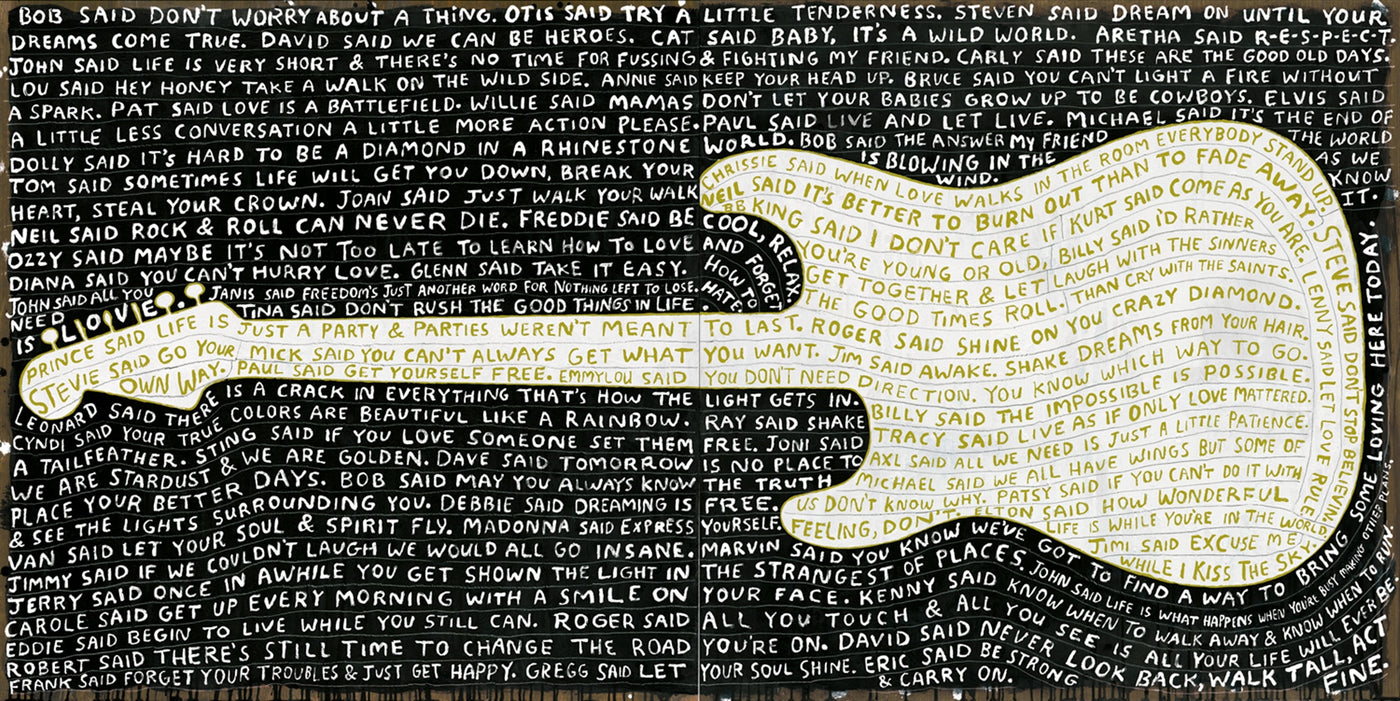 BOB SAID DON'T WORRY ABOUT A THING. OTIS SAID TRY A LITTLE TENDERNESS. STEVEN SAID DREAM ON UNTIL YOUR
DREAMS COME TRUE. DAVID SAID WE CAN BE HEROES. CAT SAID BABY, IT'S A WILD WORLD. ARETHA SAID R-E-S-P-E-C-T
JOHN SAID LIFE IS VERY SHORT & THERE'S NO TIME FOR FUSSING & FIGHTING MY FRIEND. CARLY SAID THESE ARE THE GOOD OLD DAYS.
LOU SAID HEY HONEY TAKE A WALK ON THE WILD SIDE. ANNIE SAID KEEP YOUR HEAD UP. BRUCE SAID YOU CAN'T LIGHT A FIRE WITHOUT
A SPARK. PAT SAID LOVE IS A BATTLEFIELD. WILLIE SAID MAMAS DON'T LET YOUR BABIES GROW UP TO BE COWBOYS. ELVIS SAID
A LITTLE LESS CONVERSATION A LITTLE MORE ACTION PLEASE. PAUL SAID LIVE AND LET LIVE. MICHAEL SAID IT'S THE END OF
THE WORLD
AS WE
KNOW
IT.
DOLLY SAID IT'S HARD TO BE A DIAMOND IN A RHINESTONE WORLD. BOB SAID THE ANSWER MY FRIEND
IS BLOWING IN THE
WIND.
TOM SAID SOMETIMES LIFE WILL GET YOU DOWN, BREAK YOUR
HEART, STEAL YOUR CROWN. JOAN SAID JUST WALK YOUR WALK
NEIL SAID ROCK & ROLL CAN NEVER DIE. FREDDIE SAID BE COOL, RELAX.
OZZY SAID MAYBE IT'S NOT TOO LATE TO LEARN HOW TO LOVE AND FORGET
HOW TO
HATE.
DIANA SAID YOU CAN'T HURRY LOVE. GLENN SAID TAKE IT EASY.
JOHN SAID ALL YOU
NEED
IS LOVE.
JANIS SAID FREEDOM'S JUST ANOTHER WORD FOR NOTHING LEFT TO LOSE.
TINA SAID DON'T RUSH THE GOOD THINGS IN LIFE.
PRINCE SAID LIFE IS JUST A PARTY & PARTIES WEREN'T MEANT TO LAST. ROGER SAID SHINE ON YOU CRAZY DIAMOND.
STEVIE SAID GO YOUR
OWN WAY.
MICK SAID YOU CAN'T ALWAYS GET WHAT YOU WANT. JIM SAID AWAKE. SHAKE DREAMS FROM YOUR HAIR.
PAUL SAID GET YOURSELF FREE. EMMYLOU SAID YOU DON'T NEED DIRECTION. YOU KNOW WHICH WAY TO GO.
CHRISSIE SAID WHEN LOVE WALKS IN THE ROOM EVERYBODY STAND UP.
NEIL SAID IT'S BETTER TO BURN OUT THAN TO FADE AWAY.
BB KING SAID I DON'T CARE IF KURT SAID COME AS YOU ARE.
YOU'RE YOUNG OR OLD,
GET TOGETHER & LET
THE GOOD TIMES ROLL.
BILLY SAID I'D RATHER
LAUGH WITH THE SINNERS
THAN CRY WITH THE SAINTS.
LENNY SAID LET LOVE RULE.
STEVE SAID DON'T STOP BELIEVIN'
BILLY SAID THE IMPOSSIBLE IS POSSIBLE.
TRACY SAID LIVE AS IF ONLY LOVE MATTERED.
AXL SAID ALL WE NEED IS JUST A LITTLE PATIENCE.
MICHAEL SAID WE ALL HAVE WINGS BUT SOME OF
US DON'T KNOW WHY. PATSY SAID IF YOU CAN'T DO IT WITH
FEELING, DON'T. ELTON SAID HOW WONDERFUL
LIFE IS WHILE YOU'RE IN THE WORLD
JIMI SAID EXCUSE ME
WHILE I KISS THE SKY.
LEONARD SAID THERE IS A CRACK IN EVERYTHING THAT'S HOW THE LIGHT GETS IN.
CYNDI SAID YOUR TRUE COLORS ARE BEAUTIFUL LIKE A RAINBOW. RAY SAID SHAKE
A TAILFEATHER. STING SAID IF YOU LOVE SOMEONE SET THEM FREE. JONI SAID
WE ARE STARDUST & WE ARE GOLDEN. DAVE SAID TOMORROW IS NO PLACE TO
PLACE YOUR BETTER DAYS. BOB SAID MAY YOU ALWAYS KNOW THE TRUTH
& SEE THE LIGHTS SURROUNDING YOU. DEBBIE SAID DREAMING IS FREE.
VAN SAID LET YOUR SOUL & SPIRIT FLY. MADONNA SAID EXPRESS YOURSELF.
JIMMY SAID IF WE COULDN'T LAUGH WE WOULD ALL GO INSANE. MARVIN SAID YOU KNOW WE'VE GOT TO FIND A WAY TO BRING SOME LOVING HERE TODAY.
JERRY SAID ONCE IN AWHILE YOU GET SHOWN THE LIGHT IN THE STRANGEST OF PLACES. JOHN SAID LIFE IS WHAT HAPPENS WHEN YOU'RE BUSY MAKING OTHER PLANS.
CAROLE SAID GET UP EVERY MORNING WITH A SMILE ON YOUR FACE. KENNY SAID KNOW WHEN TO WALK AWAY & KNOW WHEN TO RUN.
EDDIE SAID BEGIN TO LIVE WHILE YOU STILL CAN. ROGER SAID ALL YOU TOUCH & ALL YOU SEE IS ALL YOUR LIFE WILL EVER BE
ROBERT SAID THERE'S STILL TIME TO CHANGE THE ROAD YOU'RE ON. DAVID SAID NEVER LOOK BACK, WALK TALL, ACT
FINE.
FRANK SAID FORGET YOUR TROUBLES & JUST GET HAPPY. GREGG SAID LET YOUR SOUL SHINE. ERIC SAID BE STRONG
& CARRY ON.